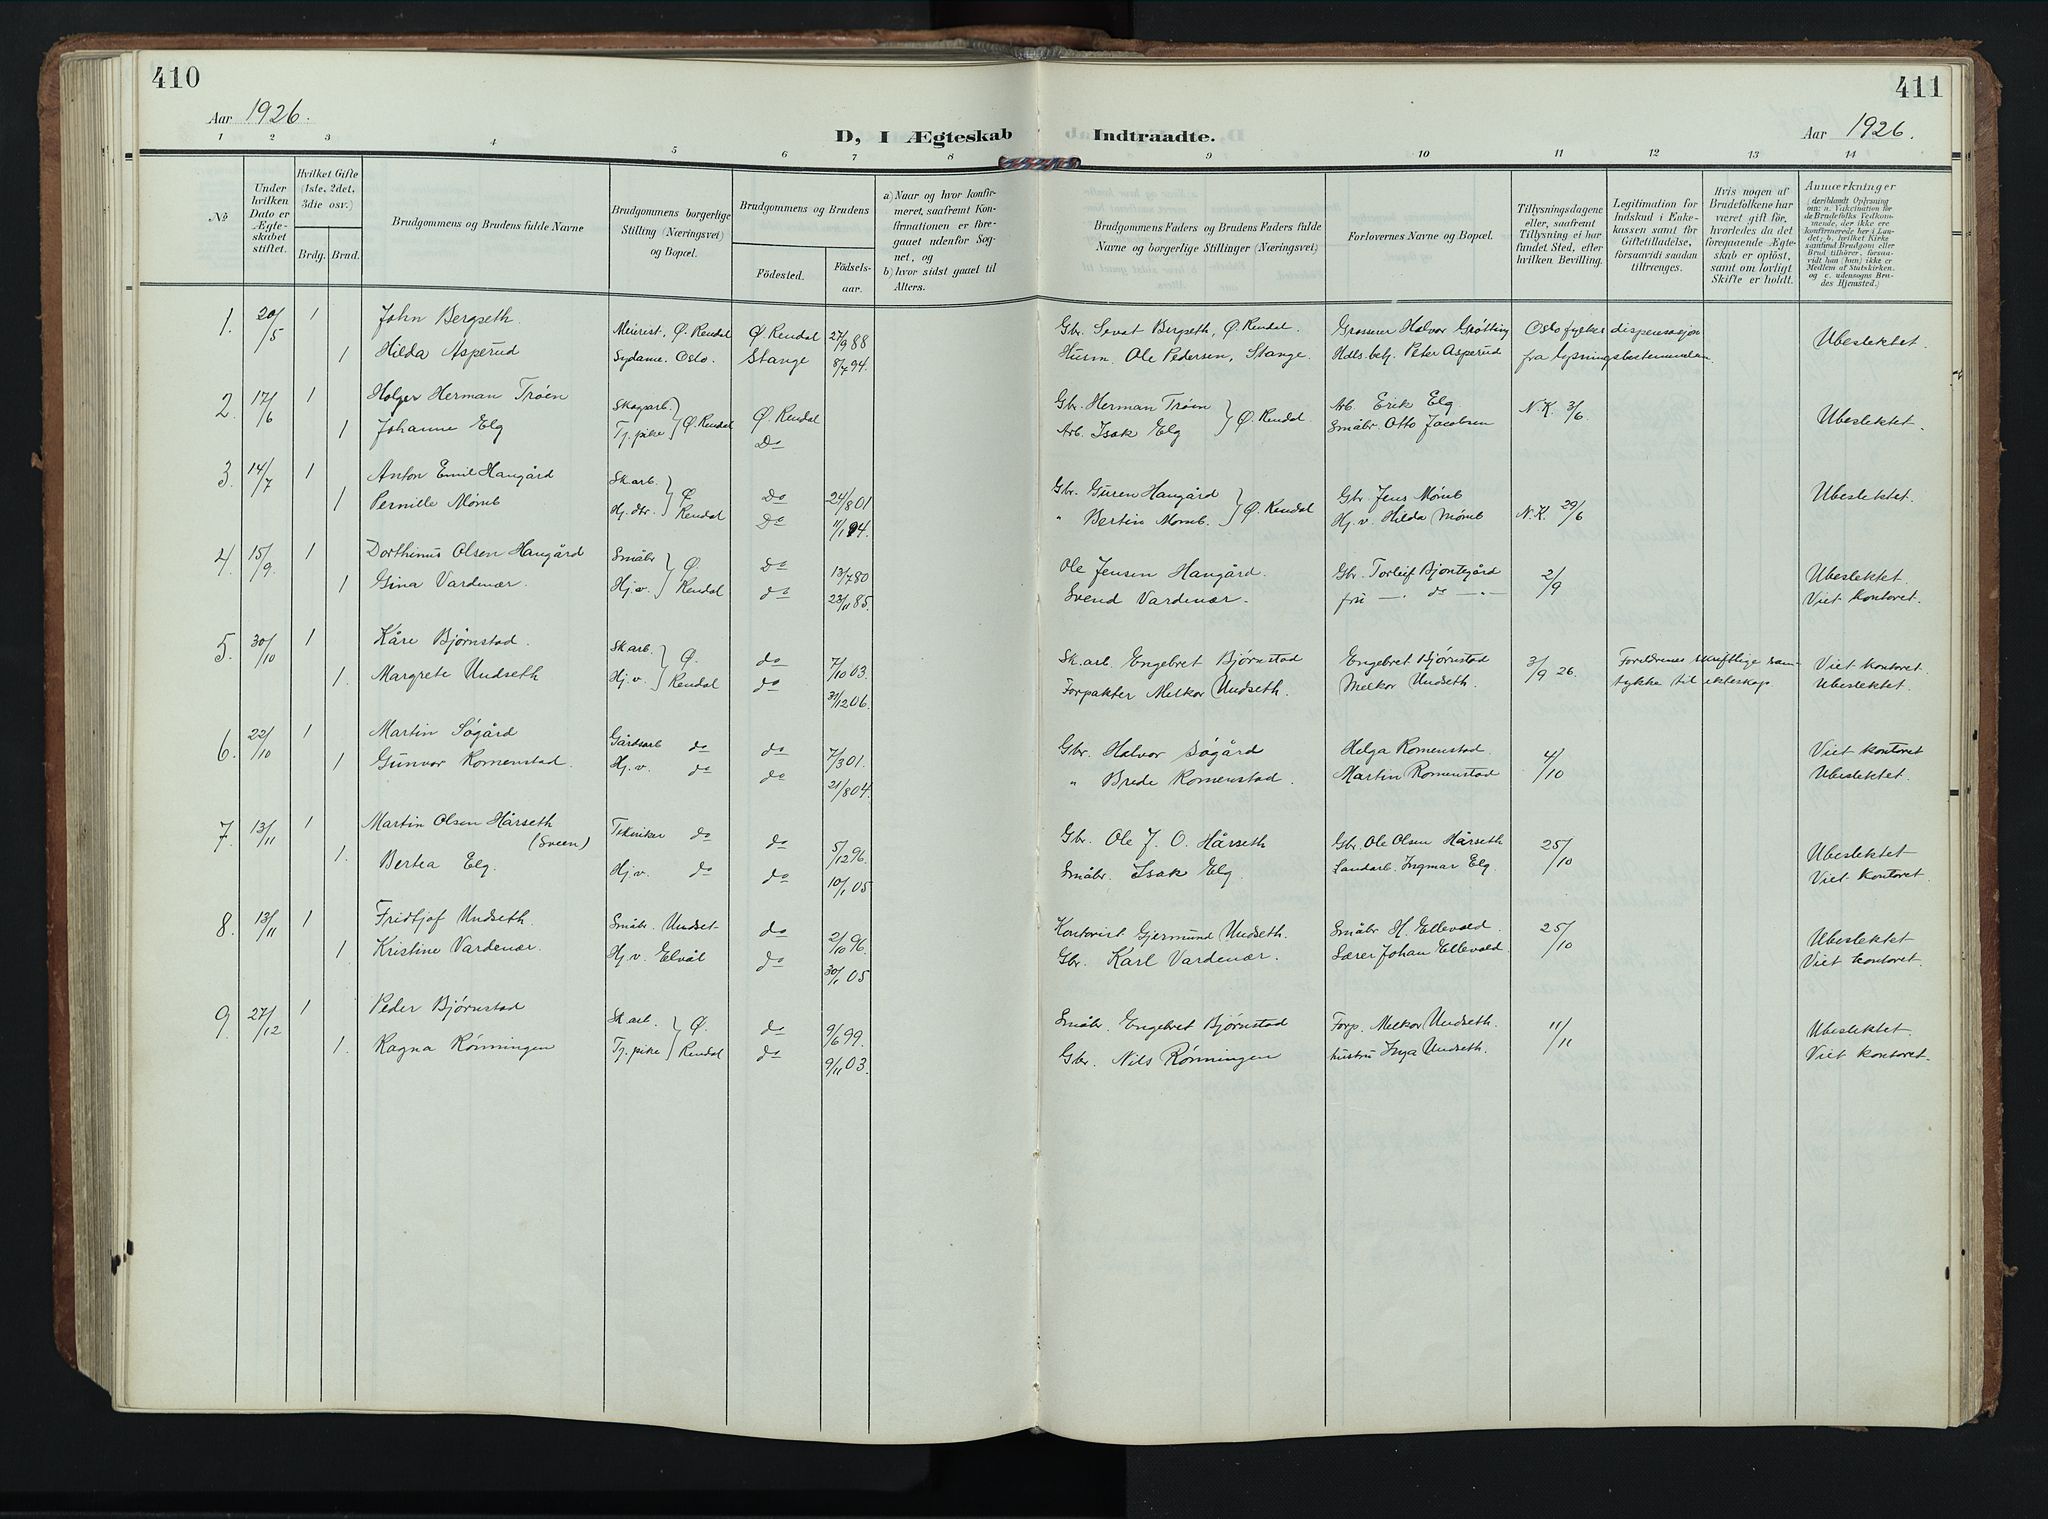 410
411
Aar 1926.
Aar 1926.
D, I Ægteskab Indtraadte.
1 2 3 4 5 6 7 8 9 10 11 12 13 14
No
Under hvilken Dato er Ægteskabet stiftet.
Hvilket Gifte (1ste, 2det, 3die osv.)
Brdg. Brud.
Brudgommens og Brudens fulde Navne
Brudgommens borgerlige Stilling (Næringsvei) og Bopæl.
Brudgommens og Brudens
Födested.
Födselsaar.
a) Naar og hvor konfirmeret, saafremt Konfirmationen er foregaaet udenfor Sognet, og
b) hvor sidst gaaet til Alters.
Brudgommens Faders og Brudens Faders fulde Navne og borgerlige Stillinger (Næringsvei)
Forlovernes Navne og Bopæl.
Tillysningsdagene eller, saafremt Tillysning ei har fundet Sted, efter hvilken Bevilling.
Legitimation for Indskud i Enkekassen samt for Giftetilladelse, forsaavidt saadan tiltrenges.
Hvis nogen af Brudefolkene har været gift för, hvorledes da det foregaaende Ægteskab er oplöst, samt om lovligt Skifte er holdt.
Anmærkninger
(deriblandt Oplysning om: a. Vakcination for de Brudefolks Vedkommende, der ikke ere konfirmerede her i Landet; b. hvilket Kirkesamfund Brudgom eller Brud tilhörer, forsaavidt han (hun) ikke er Medlem af Statskirken, og c. udensogns Brudes Hjemsted.)
1. 20/5 1 John Bergseth. Meierist, Ø. Rendal Ø. Rendal 27/9 88 Gbr. Sevat Bergseth, Ø. Rendal. Grosserer Halvor Grøtting Oslo fylkes dispensasjon
1 Hilda Asperud Sydame. Oslo. Stange 8/7 94. Husm. Ole Pedersen, Stange. Hdls. betj. Peter Asperud fra lysningsbestemmelsen Ubeslektet.
2. 17/6 1 Holger Herman Trøen Skogarb. Ø. Rendal Ø. Rendal Gbr. Herman Trøen Ø. Rendal Arb. Erik Elg N.K. 3/6
1 Johanne Elg Tj. pike Do Arb. Isak Elg Småbr. Otto Jacobsen Ubeslektet.
3. 14/7 1 Anton Emil Haugård Sk.arb. Ø. Rendal Do 24/8 01 Gbr. Guren Haugård Ø. Rendal Gbr. Jens Mømb
1 Pernille Mømb Hj. dtr. Do 11/1 94. " Bertin Mømb. Hj. v. Hilda Mømb N.K. 29/6 Ubeslektet.
4. 15/9. 1 Dorthinus Olsen Haugård Småbr Ø. Rendal Do 13/7 80 Ole Jensen Haugård. Gbr. Torleif Bjøntegård 2/9 Ubeslektet.
1 Gina Vardenær. Hj. v. do 23/11 85. Svend Vardenær. fru — " do — " Viet kontoret.
5. 30/10 1 Kåre Bjørnstad. Sk arb. Ø. Rendal do 7/10 03. Sk. arb. Engebret Bjørnstad Engebret Bjørnstad 3/9 26. Foreldrenes skriftlige sam- Viet kontoret.
1. Margrete Undseth Hj. v. do 31/12 06. Forpakter Melkor Undseth. Melkor Undseth. tykke til ekteskap Ubeslektet.
6. 22/10 1 Martin Søgård Gårdsarb do do 7/3 01. Gbr. Halvor Søgård Helga Romenstad. 4/10 Viet kontoret
1 Gunvor Romenstad. Hj. v. do do 21/8 04. " Brede Romenstad. Martin Romenstad Ubeslektet.
7. 13/11 1 Martin Olsen Hårseth (Sveen) Tekniker do do 5/12 96. Gbr. Ole J. O. Hårseth Gbr. Ole Olsen Hårseth 25/10 Ubeslektet
1. Bertea Elg. Hj. v. do do 10/1 05 Småbr. Isak Elg. Landarb. Ingmar Elg Viet kontoret.
8. 13/11 1 Fridtjof Undseth. Småbr. Undset do 2/10 96. Kontorist Gjermund Undseth. Småbr H. Ellevold. 25/10 Ubeslektet
1 Kristine Vardenær. Hj. v. Elvål do 30/1 05 Gbr. Karl Vardenær. Lærer Johan Ellevold Viet kontoret.
9. 27/12 1 Peder Bjørnstad Sk. arb. Ø. Rendal do 9/6 99. Småbr. Engebret Bjørnstad Forp. Melkor Undseth. 11/11 Ubeslektet.
1. Ragna Rønningen Tj. pike do 9/11 03. Gbr. Nils Rønningen hustru Inga Undseth. Viet kontoret.